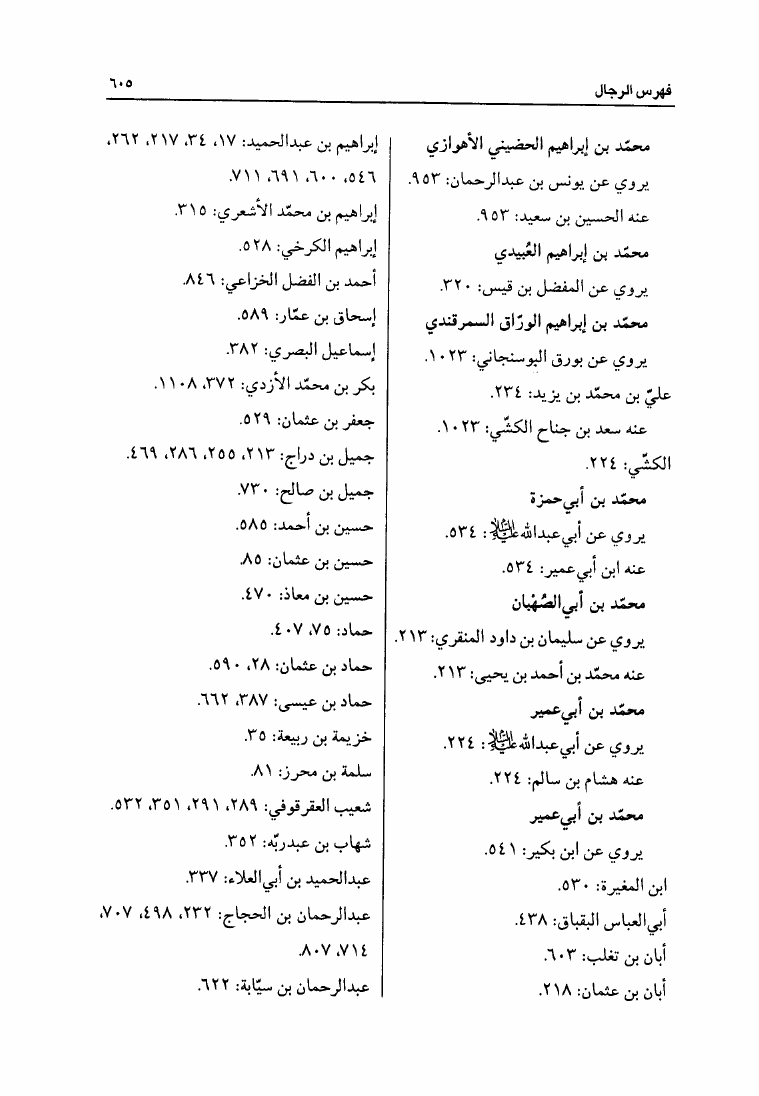 فهرس الرجال
٦٠٥
محمّد بن إبراهيم الحضيني الأهوازي
يروي عن يونس بن عبدالرحمان: ٩٥٣.
عنه الحسين بن سعيد: ٩٥٣.
محمّد بن إبراهيم العُبيدي
يروي عن المفضل بن قيس: ٣٢٠.
محمّد بن إبراهيم الورّاق السمرقندي
يروي عن بورق البوسنجاني: ١٠٢٣.
عليّ بن محمّد بن يزيد: ٢٣٤.
عنه سعد بن جناح الكشّي: ١٠٢٣.
الكشّي: ٢٢٤.
محمّد بن أبي‌حمزة
يروي عن أبي‌عبدالله عليه السلام: ٥٣٤.
عنه ابن أبي‌عمير: ٥٣٤.
محمّد بن أبي‌الصُهْبان
يروي عن سليمان بن داود المنقري: ٢١٣.
عنه محمّد بن أحمد بن يحيى: ٢١٣.
محمّد بن أبي‌عمير
يروي عن أبي‌عبدالله عليه السلام: ٢٢٤.
عنه هشام بن سالم: ٢٢٤.
محمّد بن أبي‌عمير
يروي عن ابن بكير: ٥٤١.
ابن المغيرة: ٥٣٠.
أبي‌العباس البقباق: ٤٣٨.
أبان بن تغلب: ٦٠٣.
أبان بن عثمان: ٢١٨.
إبراهيم بن عبدالحميد: ١٧، ٣٤، ٢١٧، ٢٦٢،
٥٤٦، ٦٠٠، ٦٩١، ٧١١.
إبراهيم بن محمّد الأشعري: ٣١٥.
إبراهيم الكرخي: ٥٢٨.
أحمد بن الفضل الخزاعي: ٨٤٦.
إسحاق بن عمّار: ٥٨٩.
إسماعيل البصري: ٣٨٢.
بكر بن محمّد الأزدي: ٣٧٢، ١١٠٨.
جعفر بن عثمان: ٥٢٩.
جميل بن دراج: ٢١٣، ٢٥٥، ٢٨٦، ٤٦٩.
جميل بن صالح: ٧٣٠.
حسين بن أحمد: ٥٨٥.
حسين بن عثمان: ٨٥.
حسين بن معاذ: ٤٧٠.
حماد: ٧٥، ٤٠٧.
حماد بن عثمان: ٢٨، ٥٩٠.
حماد بن عيسى: ٣٨٧، ٦٦٢.
خزيمة بن ربيعة: ٣٥.
سلمة بن محرز: ٨١.
شعيب العقرقوفي: ٢٨٩، ٢٩١، ٣٥١، ٥٣٢.
شهاب بن عبدربّه: ٣٥٢.
عبدالحميد بن أبي‌العلاء: ٣٣٧.
عبدالرحمان بن الحجاج: ٢٣٢، ٤٩٨، ٧٠٧،
٧١٤، ٨٠٧.
عبدالرحمان بن سيّابة: ٦٢٢.